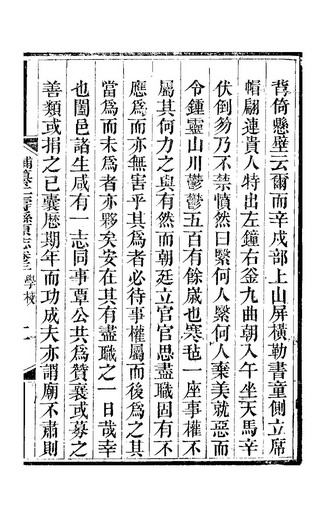 背倚懸壁云爾而辛戌部上山屏橫勒書童側立席
帽翩連貴人特出左鐘右釜九曲朝入午坐天馬辛
伏倒笏乃不禁憤然曰繄何人繄何人棄美就惡而
令鍾靈山川鬱鬱五百有餘歲也寒氊一座事權不
屬其何力之與有然而朝廷立官官思盡職固有不
應爲而亦無害乎其爲者必待事權屬而後爲之其
當爲而未爲者亦夥矣安在其有盡職之一日哉幸
也闔邑諸生咸有一志同事覃公共爲贊襄或募之
善類或捐之己囊歷期年而功成夫亦謂廟不肅則
縣頁志卷三 學校 二